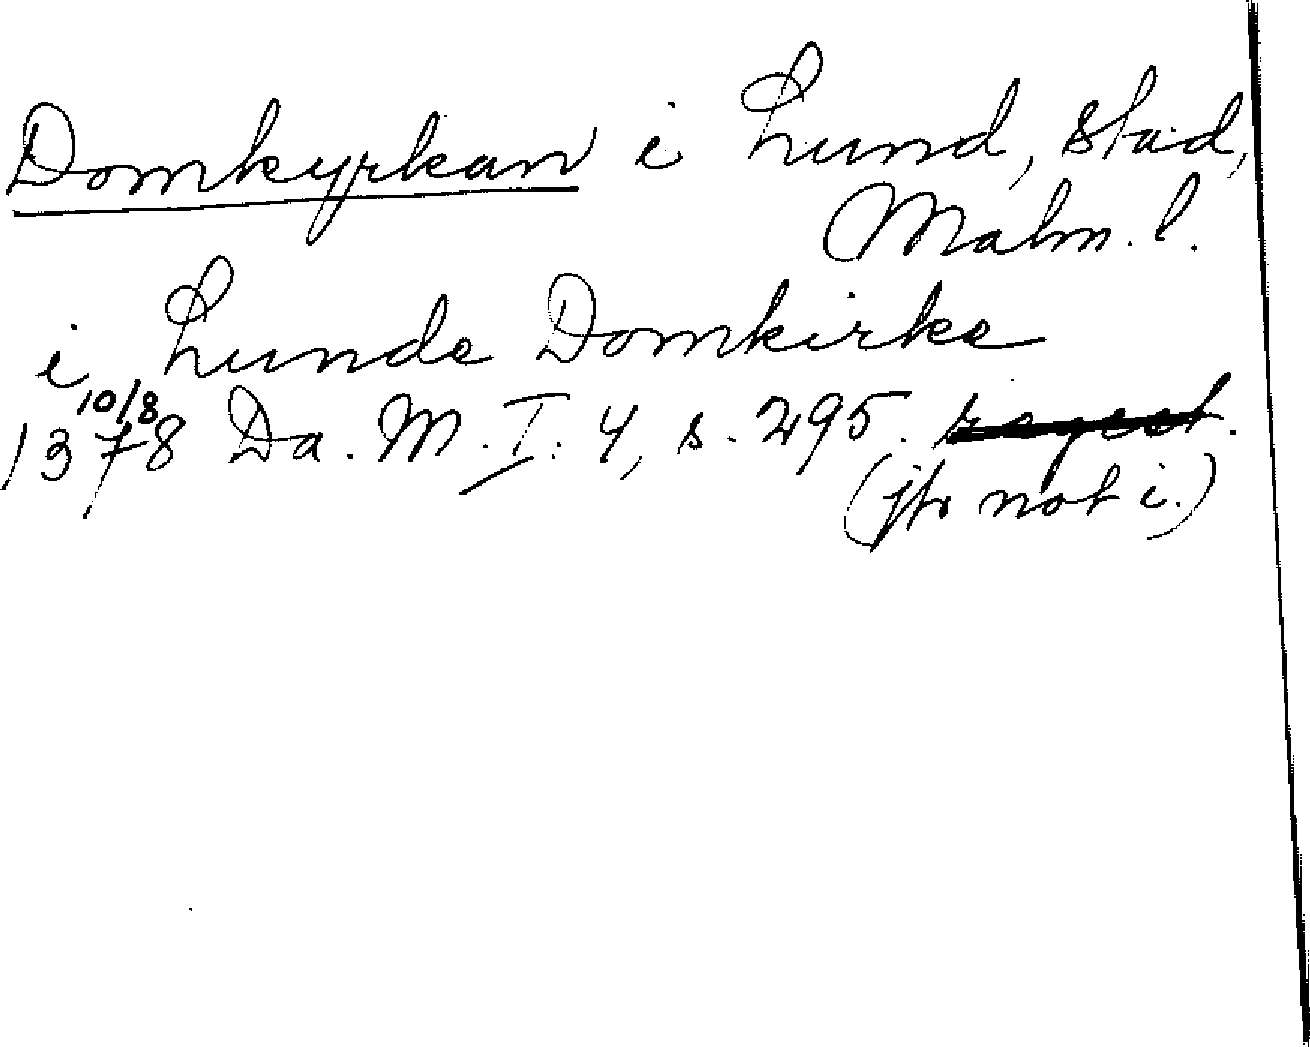 Domkyrkan i Lund, stad,
Malm. l.
i Lunde Domkirke
10/8
1378 Da. M. I: 4, s. 295.
(jfr not i.)